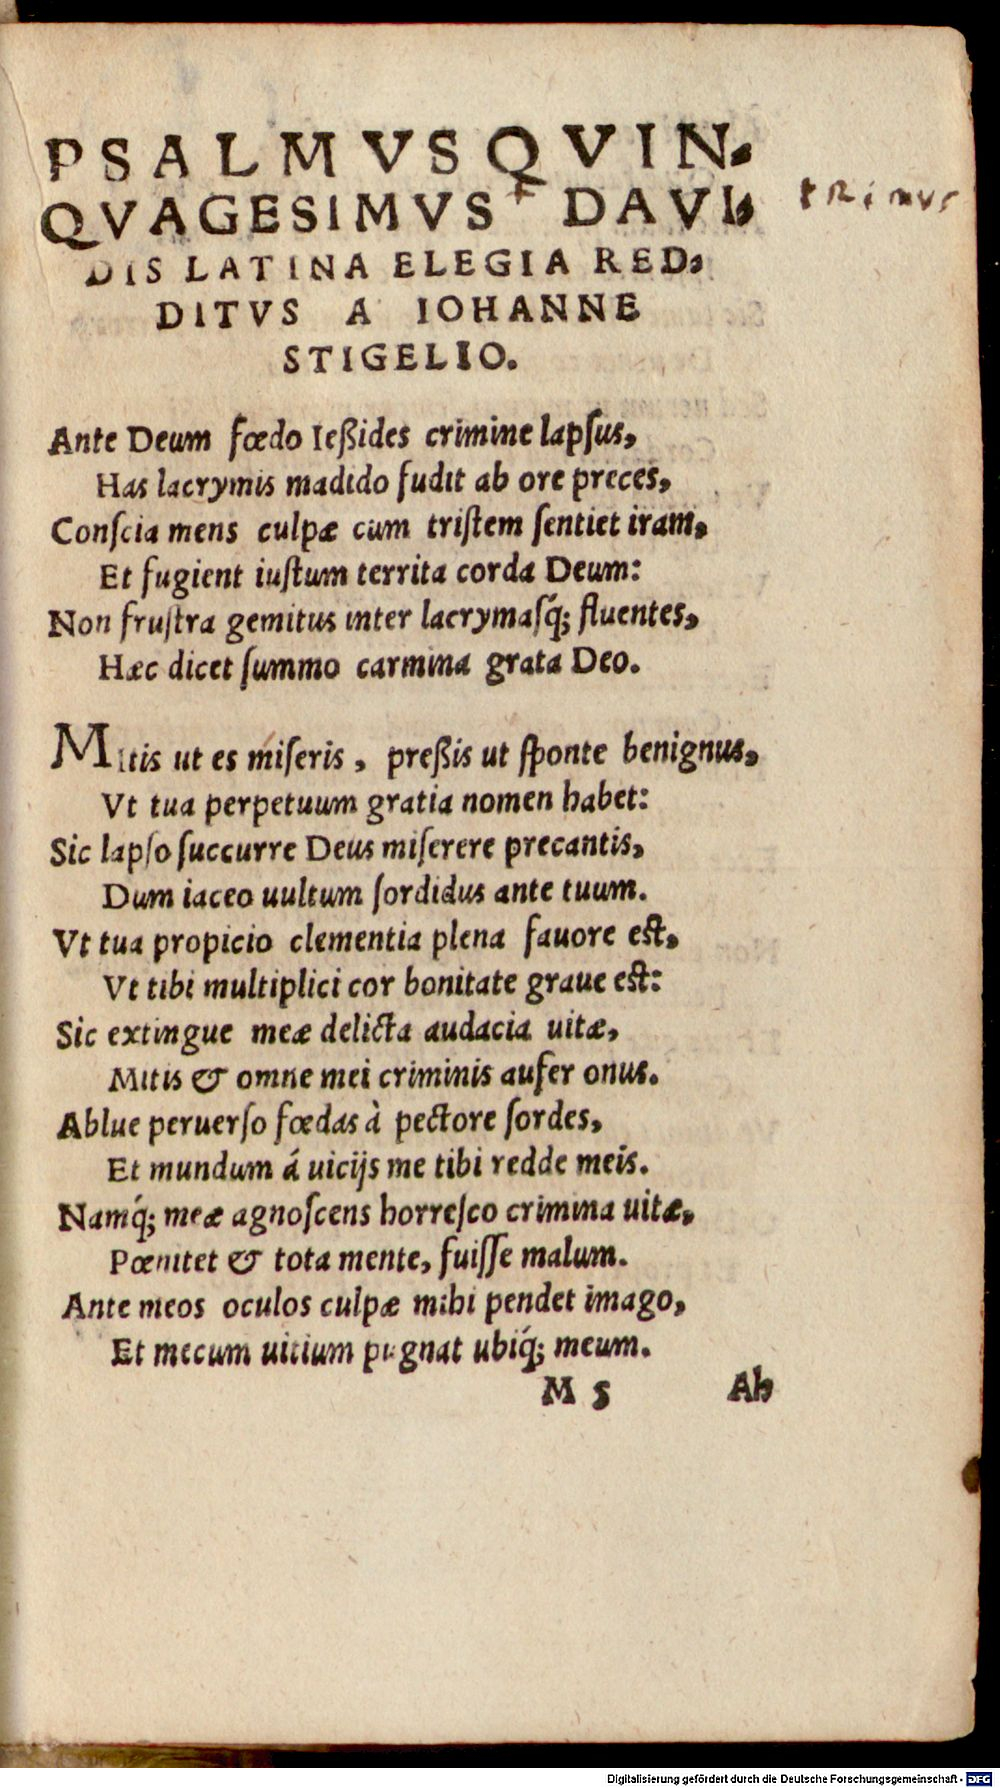 PSALMVS QVIN-
QVAGESIMVS † DAVI- tRimus
DIS LATINA ELEGIA RED-
DITVS A IOHANNE
STIGELIO.
Ante Deum fœdo Ießides crimine lapſus,
Has lacrymis madido fudit ab ore preces,
Conſcia mens culpæ cum triſtem ſentiet iram,
Et fugient iuſtum territa corda Deum:
Non fruſtra gemitus inter lacrymasq́; fluentes,
Hæc dicet ſummo carmina grata Deo.
Mitis ut es miſeris, preßis ut ſponte benignus,
Vt tua perpetuum gratia nomen habet:
Sic lapſo ſuccurre Deus miſerere precantis,
Dum iaceo uultum ſordidus ante tuum.
Vt tua propicio clementia plena fauore eſt,
Vt tibi multiplici cor bonitate graue eſt:
Sic extingue meæ delicta audacia uitæ,
Mitis & omne mei criminis aufer onus.
Ablue peruerſo fœdas à pectore ſordes,
Et mundum á uicijs me tibi redde meis.
Namq́; meæ agnoſcens horreſco crimina uitæ,
Pœnitet & tota mente, fuiſſe malum.
Ante meos oculos culpæ mihi pendet imago,
Et mecum uitium pugnat ubiq́; meum.
M 5 Ab
Digitalisierung gefördert durch die Deutsche Forschungsgemeinschaft - DFG